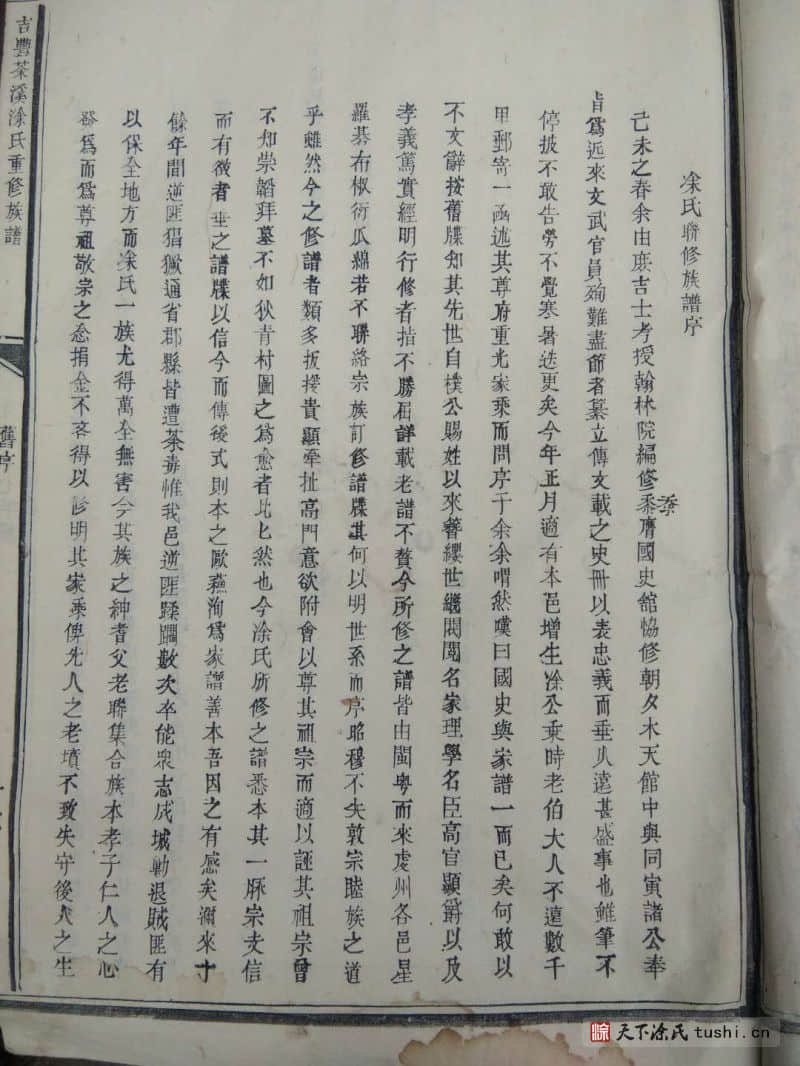 凃氏聯修族譜序
己未之春余由庶吉士考授翰林院編修忝膺國史舘恊修朝夕木天館中與同寅諸公奉
忝
旨爲近來文武官員殉難盡節者纂立傳文載之史冊以表忠義而垂久遠甚盛事也雖筆不
停披不敢告勞不覺寒暑迭更矣今年正月適有本邑增生凃公乗時老伯大人不遠數千
里郵寄一函述其尊府重光家乗而問序于余余喟然嘆曰國史與家譜一而已矣何敢以
不文辭按舊牒知其先世自樸公賜姓以來簪纓世繼閥閱名家理學名臣高官顯爵以及
孝義篤實經明行修者指不勝屈詳載老譜不贅今所修之譜皆由閩粤而來虔州各邑星
羅碁布椒衍瓜綿若不聯絡宗族訂修譜牒其何以明世系而序昭穆不失敦宗睦族之道
乎雖然今之修譜者類多扳援貴顯牽扯高門意欲附會以尊其祖宗而適以誣其祖宗曾
不知崇韜拜墓不如狄青村圖之爲愈者比匕然也今凃氏所修之譜悉本其一脈宗支信
而有徵者垂之譜牒以信今而傳後式則本之歐蘇洵爲家譜善本吾因之有感矣邇來十
餘年間逆匪猖獗通省郡縣皆遭荼毒惟我邑逆匪蹂躪數次卒能衆志成城勦退賊匪有
以保全地方而凃氏一族尤得萬全無害今其族之紳耆父老聯集合族本孝子仁人之心
發爲而爲尊祖敬宗之念捐金不吝得以修明其家乗俾先人之老墳不致失守後人之生
吉豐茶溪凃氏重修族譜
舊序
天下凃氏 tushi.cn